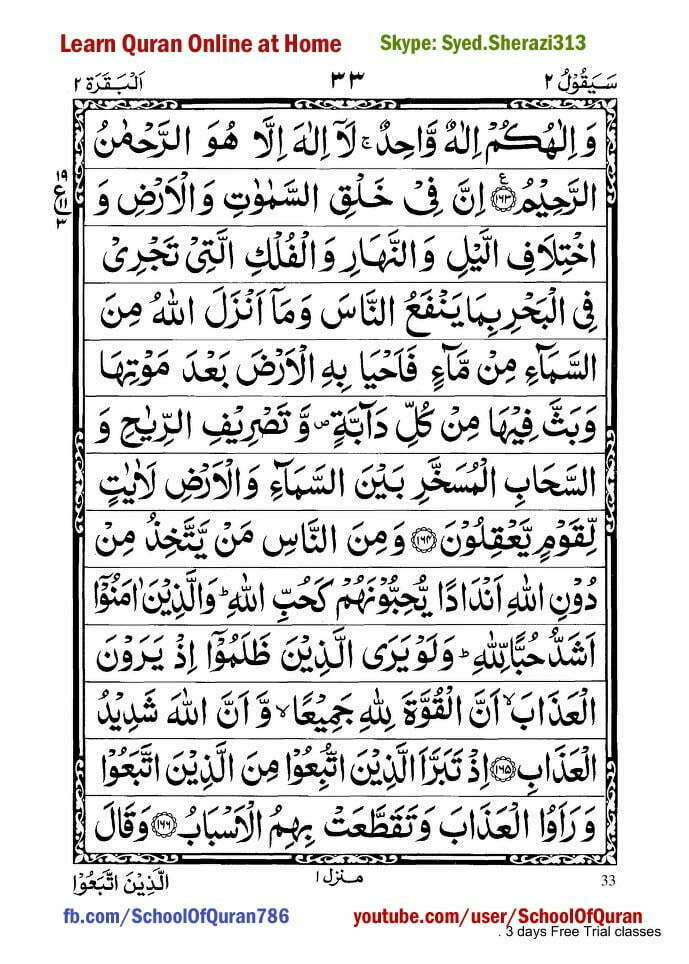 Learn Quran Online at Home
Skype: Syed.Sherazi313
سَيَقُوْلُ ٢
٣٣
اَلْبَقَرَة ٢
وَاِلٰهُكُمْ اِلٰهٌ وَّاحِدٌ ۚ لَآ اِلٰهَ اِلَّا هُوَ الرَّحْمٰنُ
الرَّحِيْمُ ﴿١٦٣﴾ ع اِنَّ فِىْ خَلْقِ السَّمٰوٰتِ وَالْاَرْضِ وَ
١٩
ع
١١
٣
اخْتِلَافِ الَّيْلِ وَالنَّهَارِ وَالْفُلْكِ الَّتِىْ تَجْرِىْ
فِى الْبَحْرِ بِمَا يَنْفَعُ النَّاسَ وَمَآ اَنْزَلَ اللّٰهُ مِنَ
السَّمَآءِ مِنْ مَّآءٍ فَاَحْيَا بِهِ الْاَرْضَ بَعْدَ مَوْتِهَا
وَبَثَّ فِيْهَا مِنْ كُلِّ دَآبَّةٍ ۖ وَّتَصْرِيْفِ الرِّيٰحِ وَ
السَّحَابِ الْمُسَخَّرِ بَيْنَ السَّمَآءِ وَالْاَرْضِ لَاٰيٰتٍ
لِّقَوْمٍ يَّعْقِلُوْنَ ﴿١٦٤﴾ وَمِنَ النَّاسِ مَنْ يَّتَّخِذُ مِنْ
دُوْنِ اللّٰهِ اَنْدَادًا يُّحِبُّوْنَهُمْ كَحُبِّ اللّٰهِ ؕ وَالَّذِيْنَ اٰمَنُوْٓا
اَشَدُّ حُبًّا لِّلّٰهِ ؕ وَلَوْ يَرَى الَّذِيْنَ ظَلَمُوْٓا اِذْ يَرَوْنَ
الْعَذَابَ ۙ اَنَّ الْقُوَّةَ لِلّٰهِ جَمِيْعًا ۙ وَّاَنَّ اللّٰهَ شَدِيْدُ
الْعَذَابِ ﴿١٦٥﴾ اِذْ تَبَرَّاَ الَّذِيْنَ اتُّبِعُوْا مِنَ الَّذِيْنَ اتَّبَعُوْا
وَرَاَوُا الْعَذَابَ وَتَقَطَّعَتْ بِهِمُ الْاَسْبَابُ ﴿١٦٦﴾ وَقَالَ
33
منزل ١
الَّذِيْنَ اتَّبَعُوْا
fb.com/SchoolOfQuran786
youtube.com/user/SchoolOfQuran
. 3 days Free Trial classes